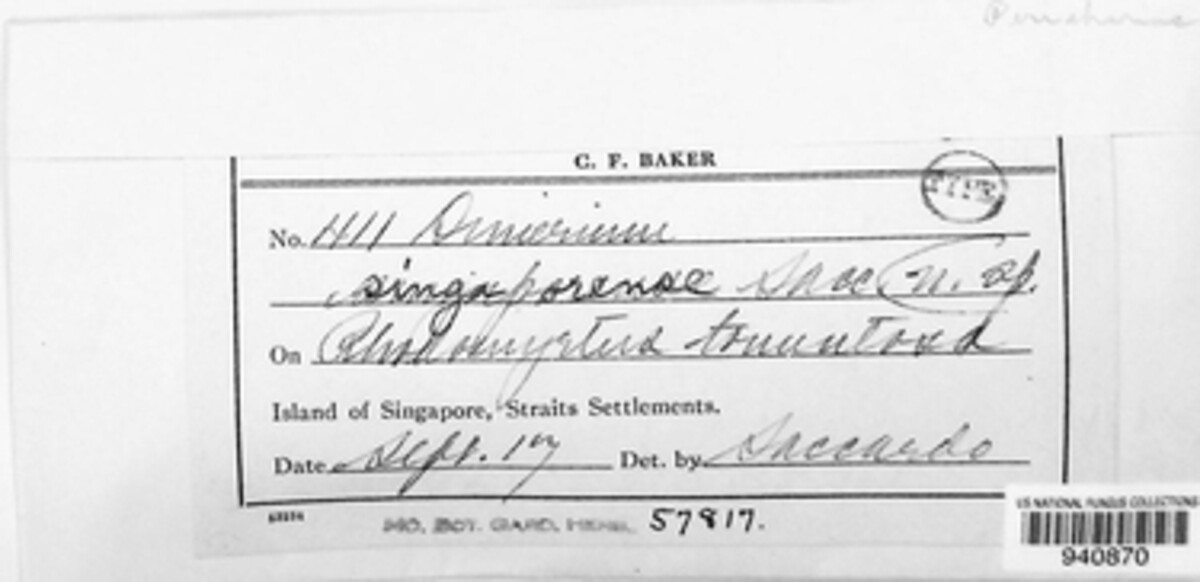 C. F. BAKER
TYPE
No. 411 Dimerium
singaporense Sacc (n. sp.
On Rhodomyrtus tomentosa
Island of Singapore, Straits Settlements.
Date Sept. 17 Det. by Saccardo
MO. BOT. GARD. HERB. 57817.
US NATIONAL FUNGUS COLLECTIONS
940870